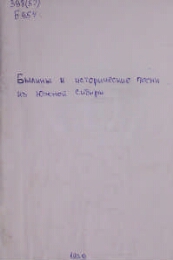 398(57)
Б 954
Былины и исторические песни
из Южной Сибири